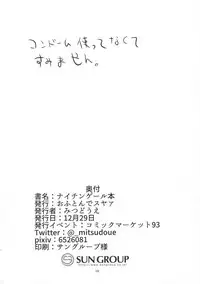 コンドーム使ってなくて
すみません。
奥付
書名:ナイチンゲール本
発行:おふとんでスヤァ
発行者:みつどうえ
発行日:12月29日
発行イベント:コミックマーケット93
Twitter:@_mitsudoue
pixiv:6526081
印刷:サングループ様
SUN GROUP